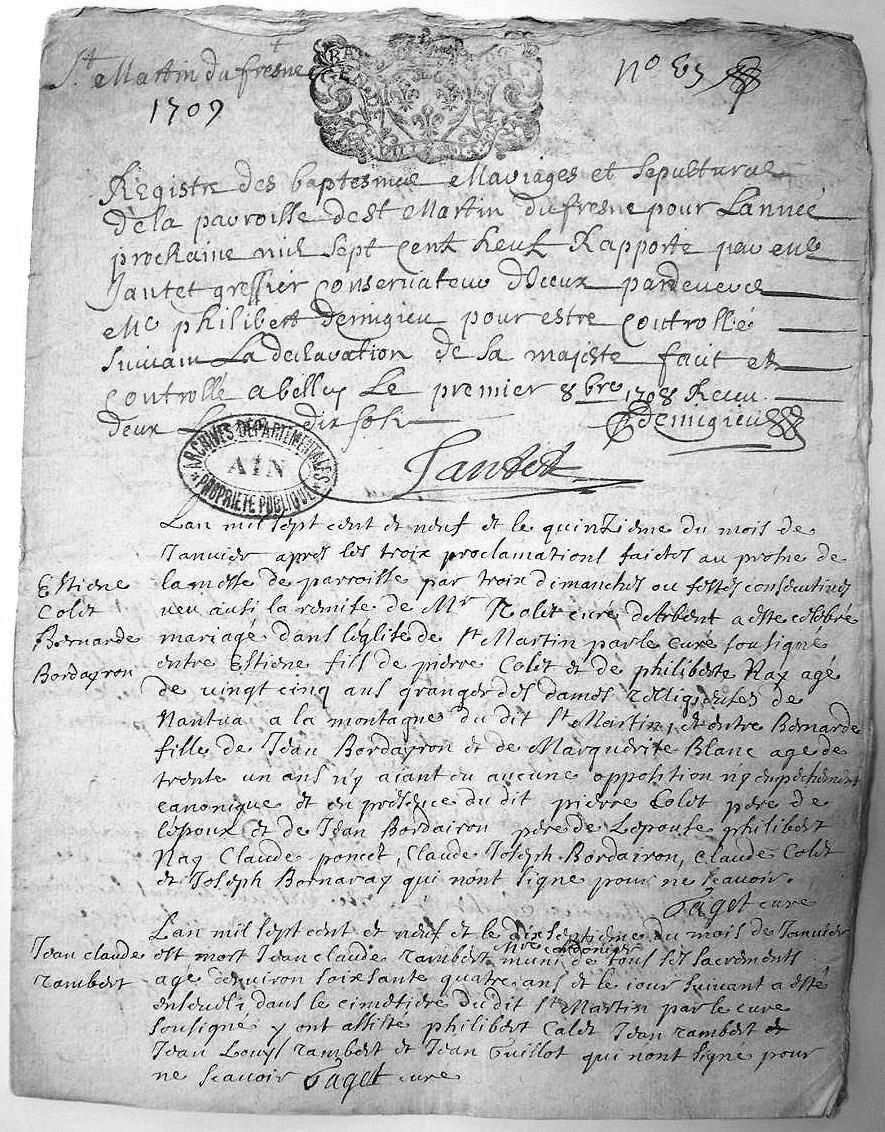 St Martin du fresne
1709
No 83
Registre des baptesmes Mariages et Sepultures
de la parroisse de St Martin du fresne pour Lannée
prochaine mil sept cent neuf Rapporté par
Jantet greffier conservateur pardevers
Mc philibert Demigieu pour estre controllé
suivant La declaration de sa majeste fait et
controllé a belley Le premier 8bre 1708 Receu
deux dix sols
Demigieu
ARCHIVES DEPARTEMENTALES
AIN
PROPRIETE PUBLIQUE
Jantet
Lan mil sept cent et neuf et le quinzieme du mois de
Janvier apres les troix proclamations faictes au prosne de
la messe de parroisse par troix dimanches ou festes consecutives
veu aussi la remise de Mr Rolet cure a esté celebré
mariage dans leglise de St Martin par le curé sousigné
entre Estiene fils de pierre Colet et de philiberte Nay agé
de vingt cinq ans granger des dames religieuses de
Nantua a la montagne du dit St Martin, et entre Bernarde
fille de Jean Bordayron et de Marguerite Blanc agé de
trente un ans n'y aiant eu aucune opposition n'y empechement
canonique et en presence du dit pierre Colet pere de
lepoux et de Jean Bordairon pere de Lepouse philibert
Nay Claude poncet, Claude Joseph Bordairon, Claude Colet
et Joseph Bornaray qui n'ont signe pour ne scavoir.
Paget cure
Estiene
Colet
Bernarde
Bordayron
Lan mil sept cent et neuf et le dixseptieme du mois de Janvier
est mort Jean claude rambert Mtre cordonier muni de tous ses sacrements
age denviron soixsante quatre ans et le iour suivant a esté
enseveli dans le cimetiere du dit St Martin par le cure
sousigné y ont assisté philibert Calet Jean rambert et
Jean Louys rambert et Jean Guillot qui nont signé pour
ne scavoir Paget cure
Jean claude
rambert